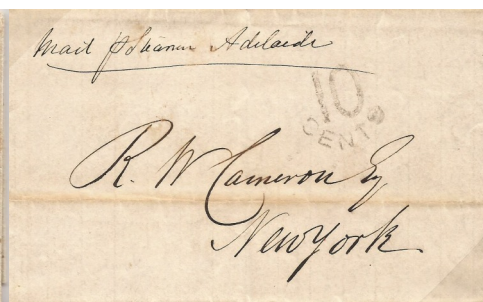 Mail p Steamer Adelaide
10
CENTS
R. W Cameron Eq
New York